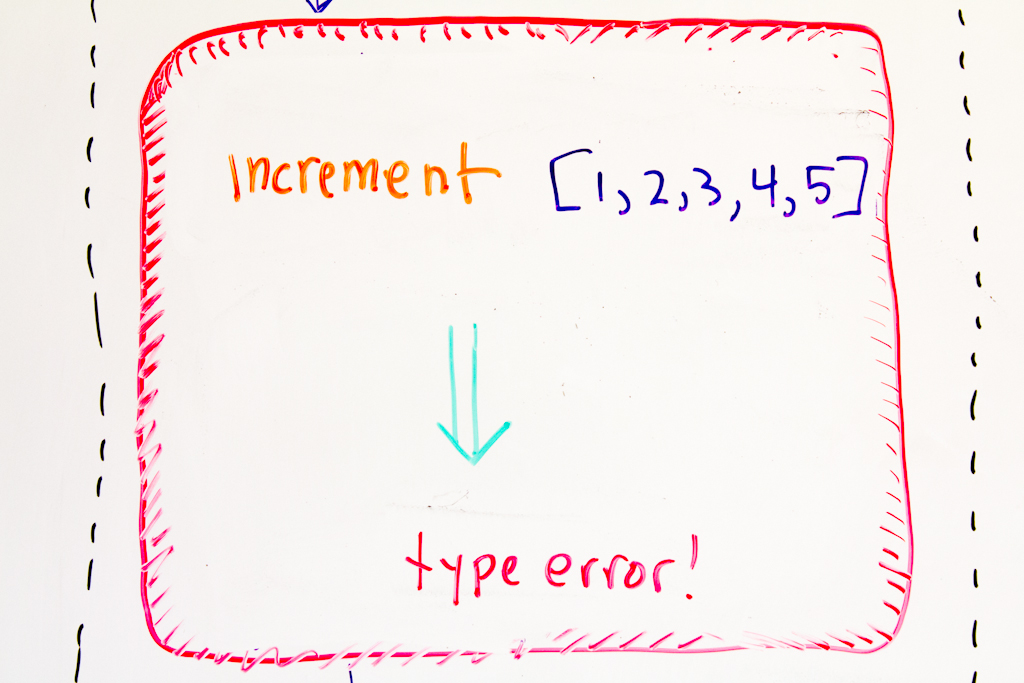 Increment [1,2,3,4,5]
type error!